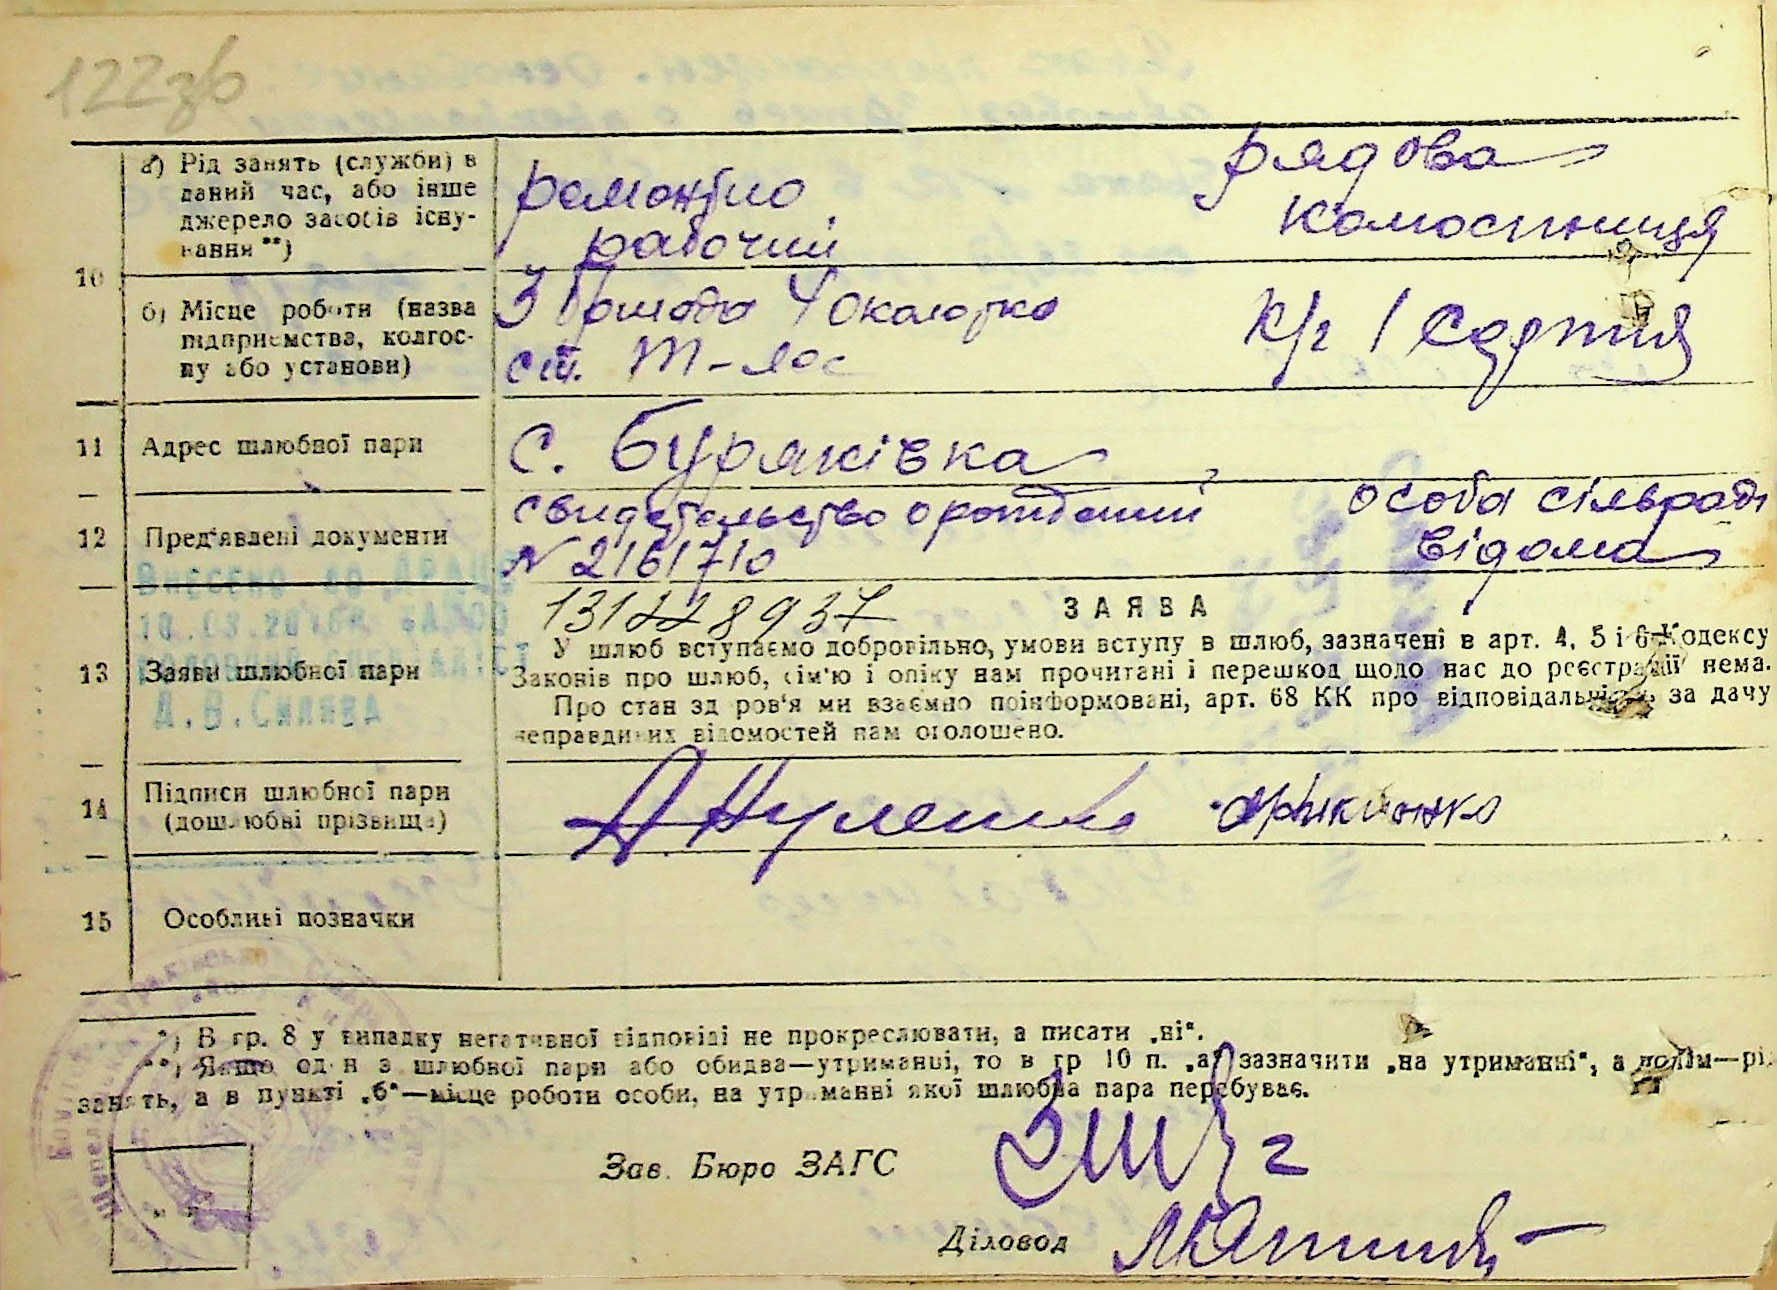 122зв
10
а) Рід занять (службы) в
даний час, або інше
джерело засобів існу-
вання **)
ремонтно
рабочий
рядова
колгоспниця
б) Місце роботи (назва
підприємства, колгос-
пу або установи)
3 бригада 4 околотка
ст.
К/г 1 Серпня
11 Адрес шлюбної пари
с. Буряківка
12 Пред'явлені документи
свидетельство о рождении
N 2161710
особа сільраді
відома
Внесено до ДРАЦС
13 Заяви шлюбної пари
А.В.Силява
ЗАЯВА
У шлюб вступаємо добровільно, умови вступу в шлюб, зазначені в арт. 4, 5 і 6 Кодексу
Законів про шлюб, сім'ю і опіку нам прочитані і перешкод щодо нас до реєстрації нема.
Про стан здоров'я ми взаємно поінформовані, арт. 68 КК про відповідальність за дачу
неправдивих відомостей нам оголошено.
14 Підписи шлюбної пари
(дошлюбні прізвища)
15 Особливі позначки
*) В гр. 8 у випадку негативної відповіді не прокреслювати, а писати „ні“.
**) Якщо один з шлюбної пари або обидва—утриманці, то в гр 10 п. „а“ зазначити „на утриманні“, а потім—рі
занять, а в пункті „б“—місце роботи особи, на утриманні якої шлюбна пара перебуває.
Зав. Бюро ЗАГС
Діловод